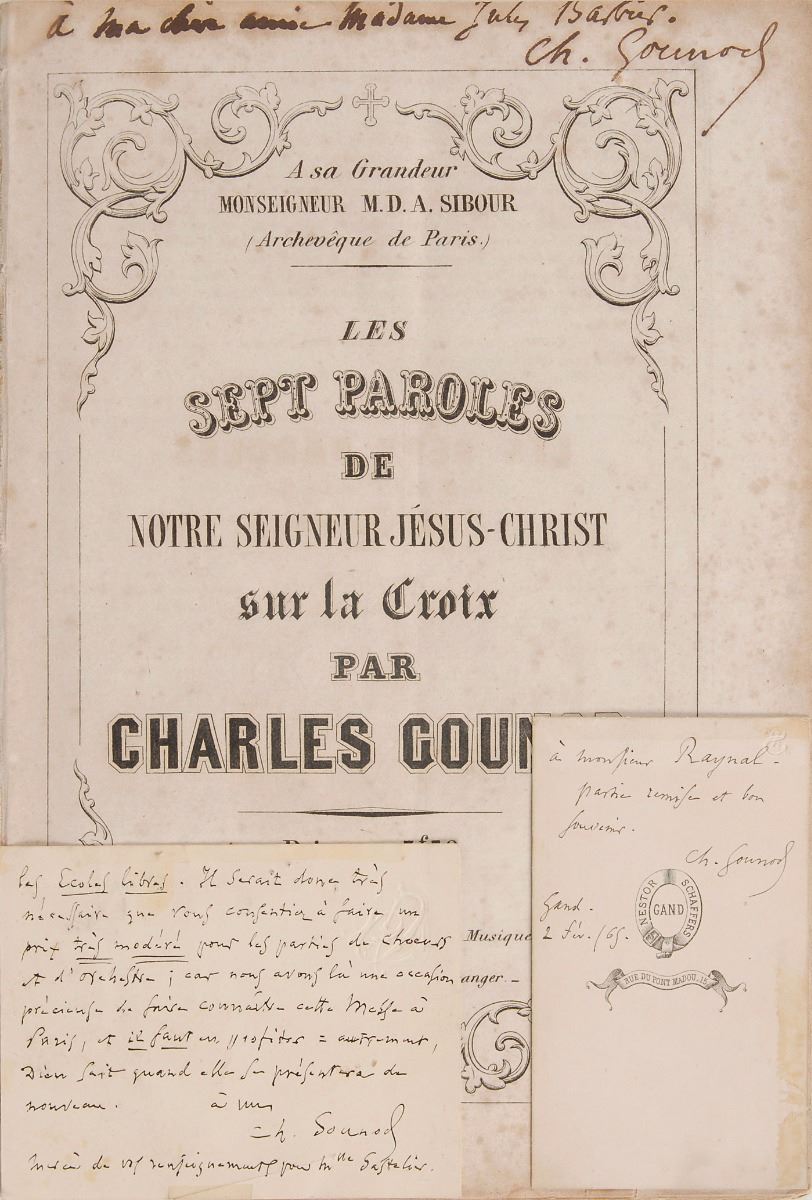 à ma chère amie Madame Jules Barbier.
Ch. Gounod
A sa Grandeur
MONSEIGNEUR M.D.A. SIBOUR
(Archevêque de Paris.)
LES
SEPT PAROLES
DE
NOTRE SEIGNEUR JÉSUS-CHRIST
sur la Croix
PAR
CHARLES GOUN
Musique
anger.
les Ecoles libres. Il serait donc très
nécessaire que vous consentiez à faire un
prix très modéré pour les parties de choeurs
et d'orchestre ; car nous avons là une occasion
précieuse de faire connaître cette Messe à
Paris, et il faut en profiter = autrement,
Dieu sait quand elle se présentera de
nouveau. à vous
Ch. Gounod
merci de vos renseignements pour Mlle
à monsieur Raynal -
partie remise et bon
souvenir.
Ch. Gounod
Gand.
2 Fév. /65.
NESTOR SCHAFFERS
GAND
RUE DU PONT MADOU, 15